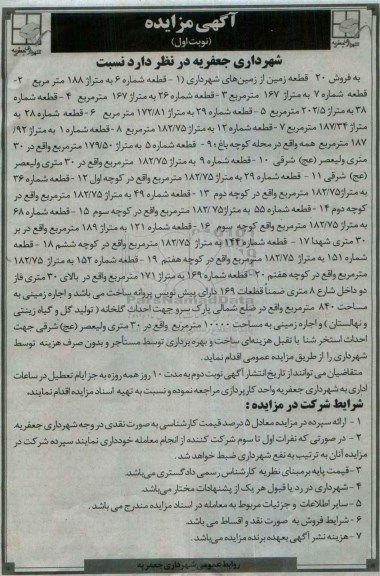 آگهی مزایده
(نوبت اول)
شهرداری جعفریه در نظر دارد نسبت
به فروش ۲۰ قطعه زمین از زمین‌های شهرداری (۱ - قطعه شماره ۶ به متراژ ۱۸۸ متر مربع ۲-
قطعه شماره ۷ به متراژ ۱۶۷ مترمربع ۳ - قطعه شماره ۲۶ به متراژ ۱۶۷ مترمربع ۴ - قطعه شماره
۳۸ به متراژ ۲۰۲/۵ مترمربع ۵ - قطعه شماره ۲۹ به متراژ ۱۷۲/۸۱ مترمربع ۶ - قطعه شماره ۲۸ به
متراژ ۱۸۷/۳۴ مترمربع ۷ - قطعه شماره ۱۲ به متراژ ۱۸۲/۷۵ مترمربع ۸ - قطعه شماره ۱ به متراژ ۹۲/
۱۸۷ مترمربع همه واقع در محله کوچه باغ ۹۰ - قطعه شماره ۵ به متراژ ۱۷۹/۵۰ مترمربع واقع در ۳۰
متری ولیعصر (عج) شرقی ۱۰ - قطعه شماره ۹ به متراژ ۱۸۲/۷۵ مترمربع واقع در ۳۰ متری ولیعصر
(عج) شرقی ۱۱ - قطعه شماره ۲۹ به متراژ ۱۸۲/۷۵ مترمربع واقع در کوچه اول ۱۲ - قطعه شماره ۳۶
به متراژ ۱۸۲/۷۵ مترمربع واقع در کوچه دوم ۱۳ - قطعه شماره ۴۹ به متراژ ۱۸۲/۷۵ مترمربع واقع در
کوچه دوم ۱۴ - قطعه شماره ۵۵ به متراژ ۱۸۲/۷۵ مترمربع واقع در کوچه سوم ۱۵ - قطعه شماره ۶۸
به متراژ ۱۸۲/۷۵ مترمربع واقع کوچه سوم ۱۶ - قطعه شماره ۱۲۱ به متراژ ۱۸۹ مترمربع واقع در بر
۳۰ متری شهدا ۱۷ - قطعه شماره ۱۴۳ به متراژ ۱۸۲/۷۵ مترمربع واقع در کوچه ششم ۱۸ - قطعه
شماره ۱۵۱ به متراژ ۱۸۲/۷۵ مترمربع واقع در کوچه هفتم ۱۹ - قطعه شماره ۱۵۲ به متراژ ۱۸۲/۷۵
مترمربع واقع در کوچه هفتم ۲۰ - قطعه شماره ۱۶۹ به متراژ ۱۷۱ مترمربع واقع در بالای ۳۰ متری فاز
دو داخل شارع ۸ متری ضمناً قطعات ۱۶۹ دارای پیش نویس پروانه ساخت می باشد و اجاره زمینی به
مساحت ۸۴۰ مترمربع واقع در ضلع شمالی پارک سرو جهت احداث گلخانه (تولید گل و گیاه زینتی
و نهالستان) و اجاره زمینی به مساحت ۱۰۰۰۰ مترمربع واقع در ۳۰ متری ولیعصر (عج) شرقی جهت
احداث استخر شنا با تقبل هزینه‌های ساخت و بهره برداری توسط مستأجر و بدون صرف هزینه توسط
شهرداری را از طریق مزایده عمومی اقدام نماید.
متقاضیان می توانند از تاریخ انتشار آگهی نوبت دوم به مدت ۱۰ روز همه روزه به جز ایام تعطیل در ساعات
اداری به شهرداری جعفریه واحد کارپردازی مراجعه نموده و نسبت به تهیه اسناد مزایده اقدام نمایند.
شرایط شرکت در مزایده :
۱ - ارائه سپرده در مزایده معادل ۵ درصد قیمت کارشناسی به صورت نقدی در وجه شهرداری جعفریه
۲ - در صورتی که نفرات اول تا سوم شرکت کننده از انجام معامله خودداری نمایند سپرده شرکت در
مزایده آنان به ترتیب به نفع شهرداری ضبط خواهد شد.
۳ - قیمت پایه بر مبنای نظریه کارشناس رسمی دادگستری می‌باشد.
۴ - شهرداری در رد یا قبول هر یک از پشنهادات مختار می‌باشد.
۵ - سایر اطلاعات و جزئیات مربوط به معامله در اسناد مزایده مندرج می باشد.
۶ - شرایط فروش به صورت نقد و اقساط می باشد.
۷ - هزینه نشر آگهی بعهده برنده مزایده می‌باشد.
روابط عمومی شهرداری جعفریه